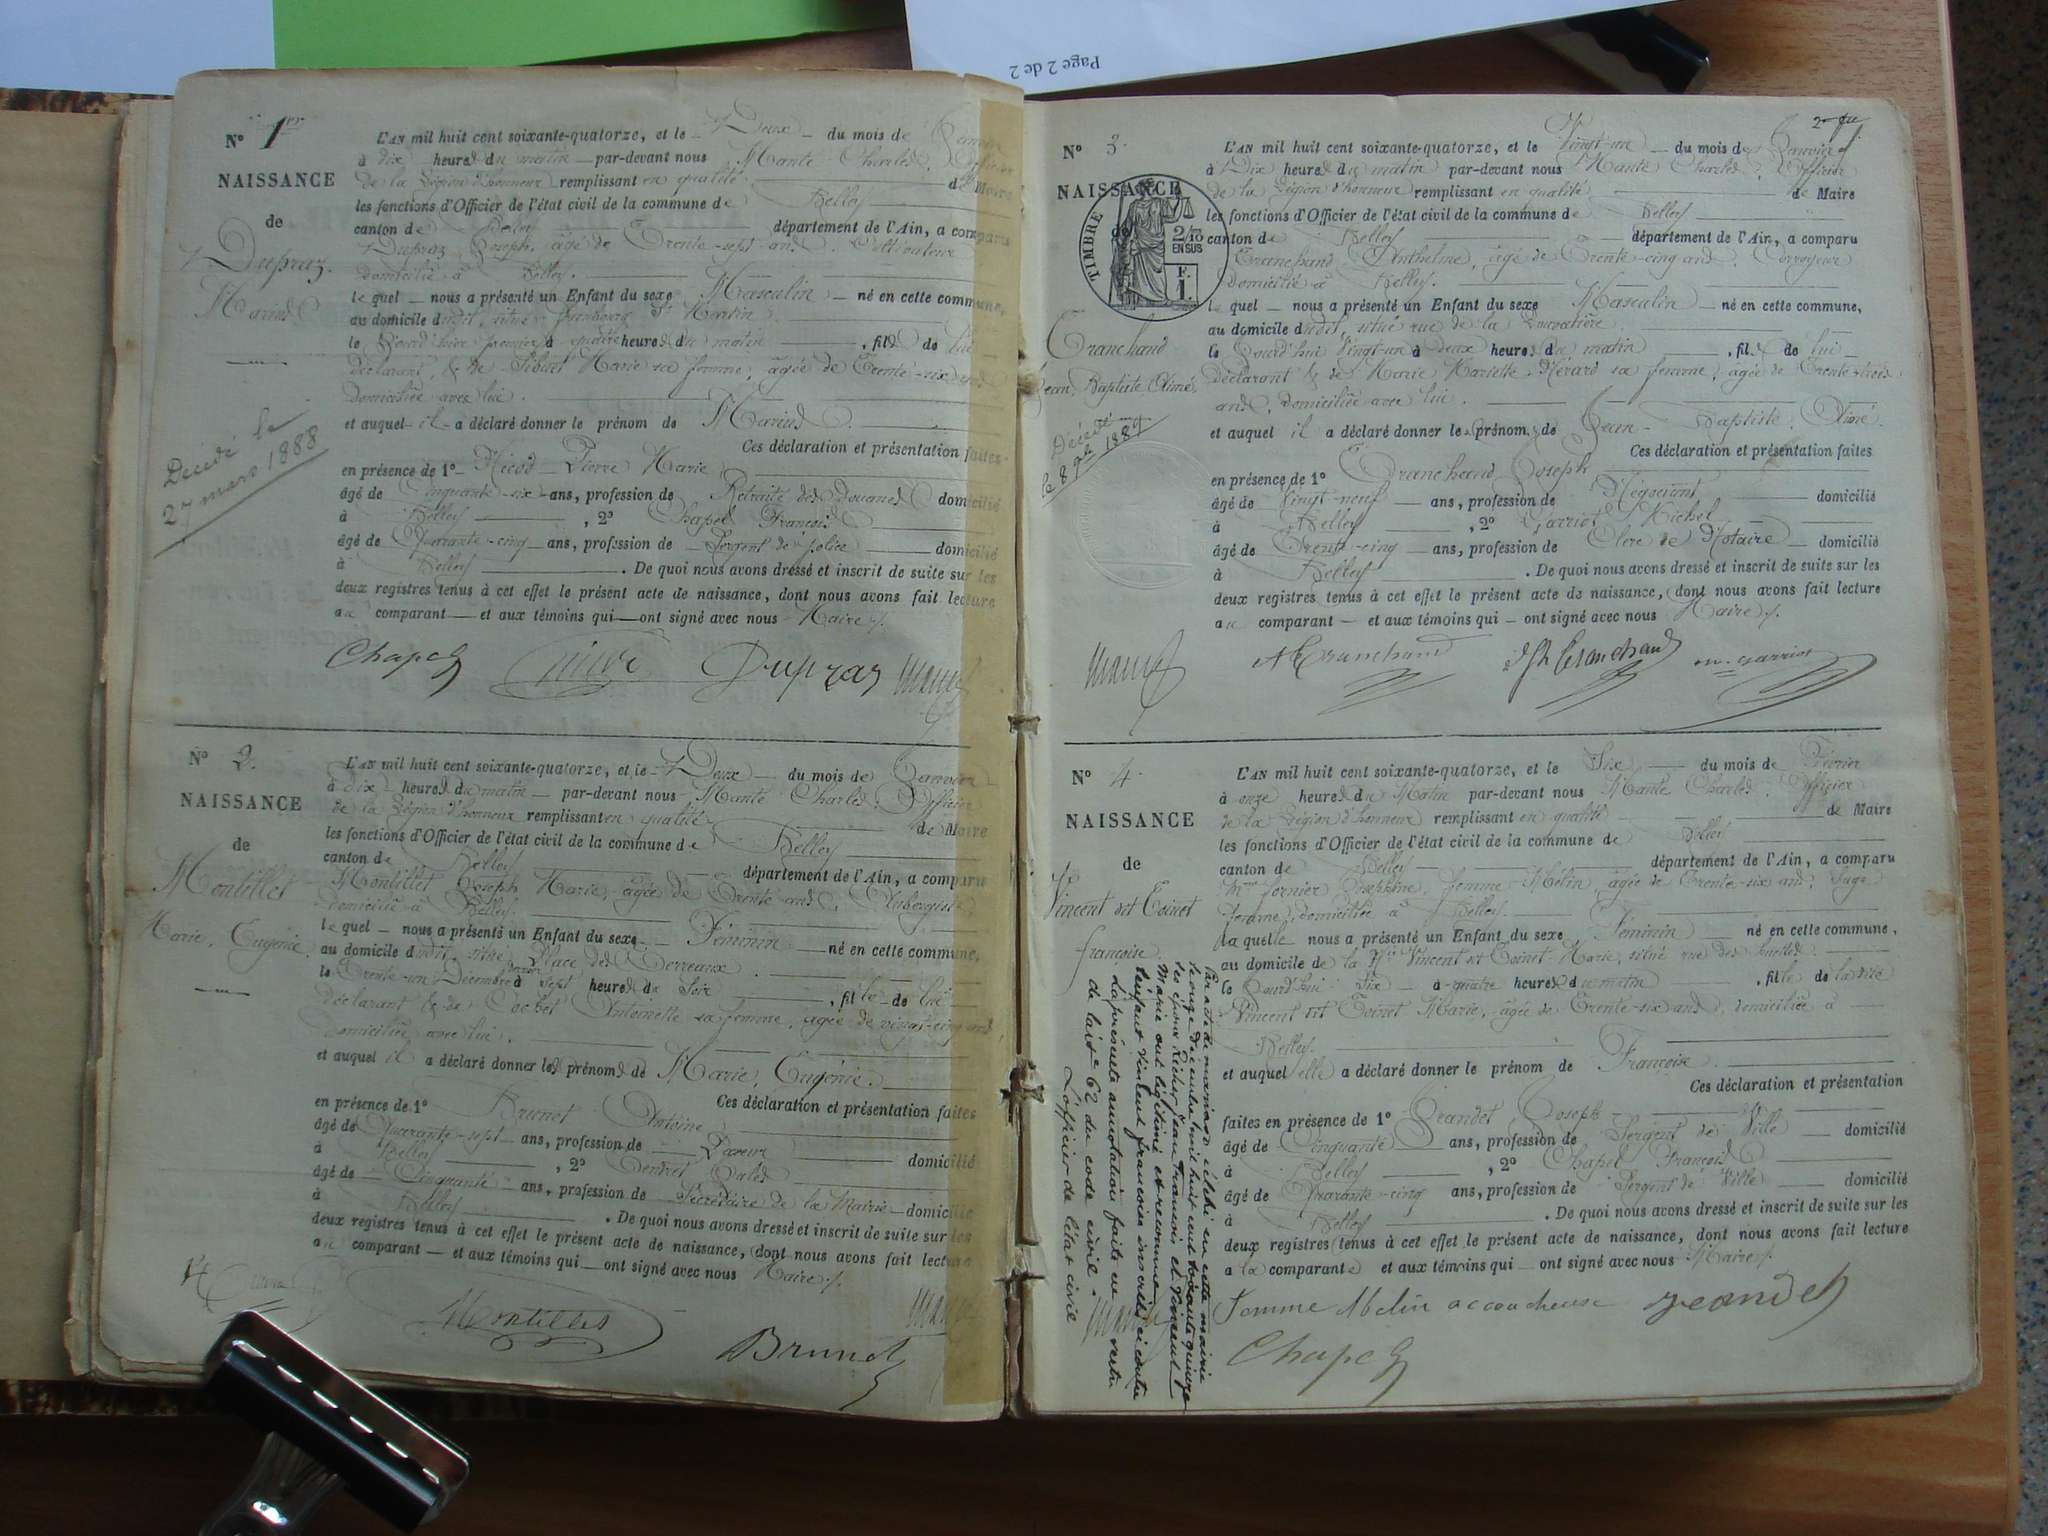 Page 2 de 2
N° 1er
NAISSANCE
de
Dupraz
Marius
Décédé le
27 mars 1888
L'AN mil huit cent soixante-quatorze, et le Deux du mois de Janvier
à dix heures du matin par-devant nous Mante Charles, Officier
de la Légion d'honneur remplissant en qualité de Maire
les fonctions d'Officier de l'état civil de la commune de Belley
canton de Belley département de l'Ain, a comparu
Dupraz Joseph, âgé de Trente-sept ans, Cultivateur
domicilié à Belley.
le quel nous a présenté un Enfant du sexe Masculin né en cette commune,
au domicile dudit, situé faubourg St Martin
le jourd'hier premier à quatre heures du matin, fils de lui
déclarant, & de Sibuet Marie sa femme, âgée de Trente-six ans
domiciliée avec lui.
et auquel il a déclaré donner le prénom de Marius.
Ces déclaration et présentation faites
en présence de 1° Pierre Marie
âgé de Cinquante-six ans, profession de Retraité des Douanes domicilié
à Belley, 2° Chapel François
âgé de Quarante-cinq ans, profession de Sergent de police domicilié
à Belley. De quoi nous avons dressé et inscrit de suite sur les
deux registres tenus à cet effet le présent acte de naissance, dont nous avons fait lecture
au comparant et aux témoins qui ont signé avec nous Maire.
Chapel Dupraz
N° 2.
NAISSANCE
de
Montillet
Marie, Eugénie
L'AN mil huit cent soixante-quatorze, et le Deux du mois de Janvier
à dix heures du matin par-devant nous Mante Charles, Officier
de la Légion d'honneur remplissant en qualité de Maire
les fonctions d'Officier de l'état civil de la commune de Belley
canton de Belley département de l'Ain, a comparu
Montillet Joseph Marie, âgée de Trente ans, Aubergiste
domicilié à Belley.
le quel nous a présenté un Enfant du sexe Féminin né en cette commune,
au domicile dudit, situé Place des Terreaux.
le Trente-un Décembre dernier à sept heures du Soir, fille de lui
déclarant & de Cochet Antoinette sa femme, âgée de vingt-cinq ans
domiciliée avec lui.
et auquel il a déclaré donner les prénoms de Marie, Eugénie.
Ces déclaration et présentation faites
en présence de 1° Brunet Antoine
âgé de Quarante-sept ans, profession de domicilié
à Belley, 2°
âgé de Cinquante ans, profession de Secrétaire de la Mairie domicilié
à Belley. De quoi nous avons dressé et inscrit de suite sur les
deux registres tenus à cet effet le présent acte de naissance, dont nous avons fait lecture
au comparant et aux témoins qui ont signé avec nous Maire.
Montillet
Brunet
2me
N° 3.
NAISSANCE
de
TIMBRE
2/10
EN SUS
F.
1.
Tranchand
Jean, Baptiste, Aimé
Décédé
le 8 9bre 1889
L'AN mil huit cent soixante-quatorze, et le Vingt-un du mois de Janvier
à Dix heures du matin par-devant nous Mante Charles, Officier
de la Légion d'honneur remplissant en qualité de Maire
les fonctions d'Officier de l'état civil de la commune de Belley
canton de Belley département de l'Ain, a comparu
Tranchand Anthelme, âgé de Trente-cinq ans, Corroyeur
domicilié à Belley.
le quel nous a présenté un Enfant du sexe Masculin né en cette commune,
au domicile dudit, situé rue de la
le jourd'hui Vingt-un à deux heures du matin, fils de lui
déclarant & de Marie Mariette sa femme, âgée de Trente-trois
ans, domiciliée avec lui.
et auquel il a déclaré donner les prénoms de Jean-Baptiste, Aimé.
Ces déclaration et présentation faites
en présence de 1° Tranchand Joseph
âgé de Vingt-neuf ans, profession de Négociant domicilié
à Belley, 2° Garriot Michel
âgé de Trente-cinq ans, profession de Clerc de Notaire domicilié
à Belley. De quoi nous avons dressé et inscrit de suite sur les
deux registres tenus à cet effet le présent acte de naissance, dont nous avons fait lecture
au comparant et aux témoins qui ont signé avec nous Maire.
A Tranchand Jph Tranchand m. garriot
N° 4.
NAISSANCE
de
Vincent dit Toinet
françoise
L'AN mil huit cent soixante-quatorze, et le Six du mois de Février
à onze heures du Matin par-devant nous Mante Charles, Officier
de la Légion d'honneur remplissant en qualité de Maire
les fonctions d'Officier de l'état civil de la commune de Belley
canton de Belley département de l'Ain, a comparu
Mme fornier Joséphine, femme Mélin, âgée de Trente-six ans, Sage
femme, domiciliée à Belley.
la quelle nous a présenté un Enfant du sexe Féminin né en cette commune,
au domicile de la Vincent dit Toinet Marie, situé rue des
le jourd'hui Six à quatre heures du matin, fille de la dite
Vincent dit Toinet Marie, âgée de Trente-six ans, domiciliée à
Belley.
et auquel elle a déclaré donner le prénom de Françoise.
Ces déclaration et présentation
faites en présence de 1° Jeandet Joseph
âgé de Cinquante ans, profession de Sergent de Ville domicilié
à Belley, 2° Chapel François
âgé de Quarante-cinq ans, profession de Sergent de Ville domicilié
à Belley. De quoi nous avons dressé et inscrit de suite sur les
deux registres tenus à cet effet le présent acte de naissance, dont nous avons fait lecture
à la comparante et aux témoins qui ont signé avec nous Maire.
femme Mélin accoucheuse Jeandet
Chapel
Par acte de mariage célébré en cette mairie
le onze décembre mil huit cent soixante quinze
les époux Jean François et Vincent
Marie ont légitimé et reconnu
l'enfant Vincent françoise inscrit ci contre
La présente annotation faite en vertu
de l'art. 62 du code civil.
L'officier de l'état civil